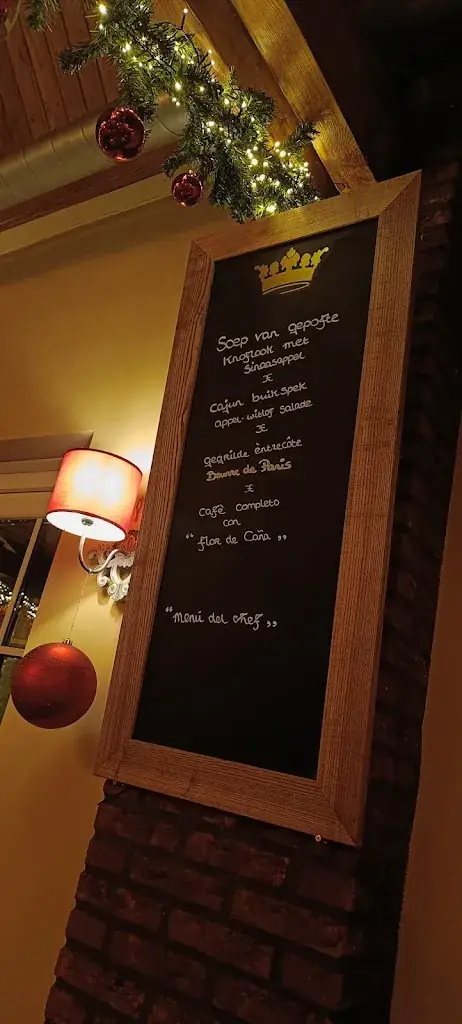 Soep van gepofte
Knoflook met
Sinaasappel
Cajun buikspek
appel-witlof salade
gegrilde èntrecôte
Beurre de Paris
Café completo
con
“ flor de Caña „
“menú del chef „